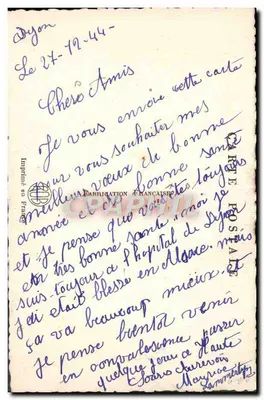 Dijon
Le 27-12-44-
Chers Amis
Je vous envoie cette carte
pour vous souhaiter mes
meilleurs vœux de bonne
année et de bonne santé
et je pense que vous êtes toujours
en très bonne santé moi je
suis toujour a l'hopital de Dijon
j'ai était blessé en Alsace mais
sa va beaucoup mieux et
je pense bientot venir
en convalessence passer
quelque jour a Haute
Maurice
FABRICATION FRANÇAISE
CARTE POSTALE
Imprimé en France